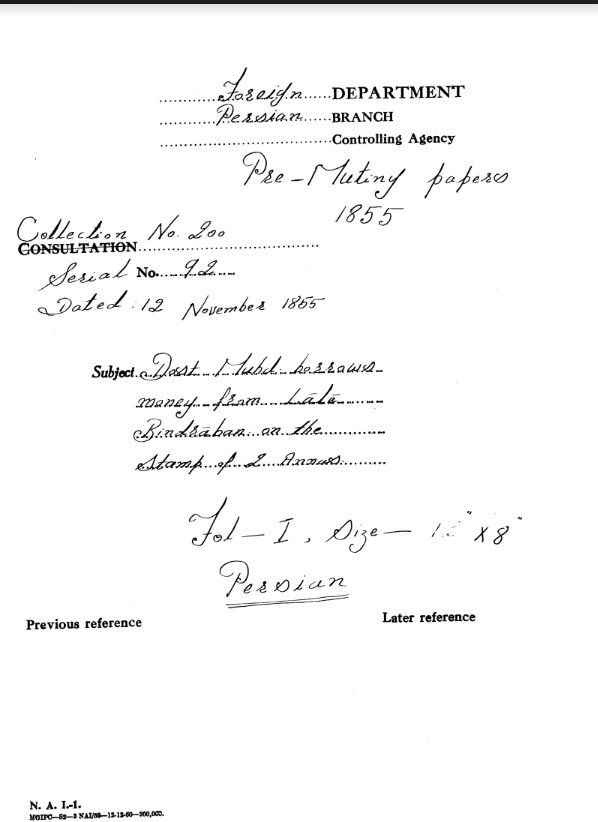 Foreign DEPARTMENT
Persian BRANCH
Controlling Agency
Pre-Mutiny papers
1855
Collection No. 200
CONSULTATION
Serial No. 92
Dated: 12 November 1855
Subject. Dost Muhd. borrows
money from Lālā
Bindrāban on the
Stamp of 2 Annas.
Fol - I, Size - X 8"
Persian
Previous reference Later reference
N. A. I.-1.
MGIPC—53—3 NAI/59—12-12-60—200,000.